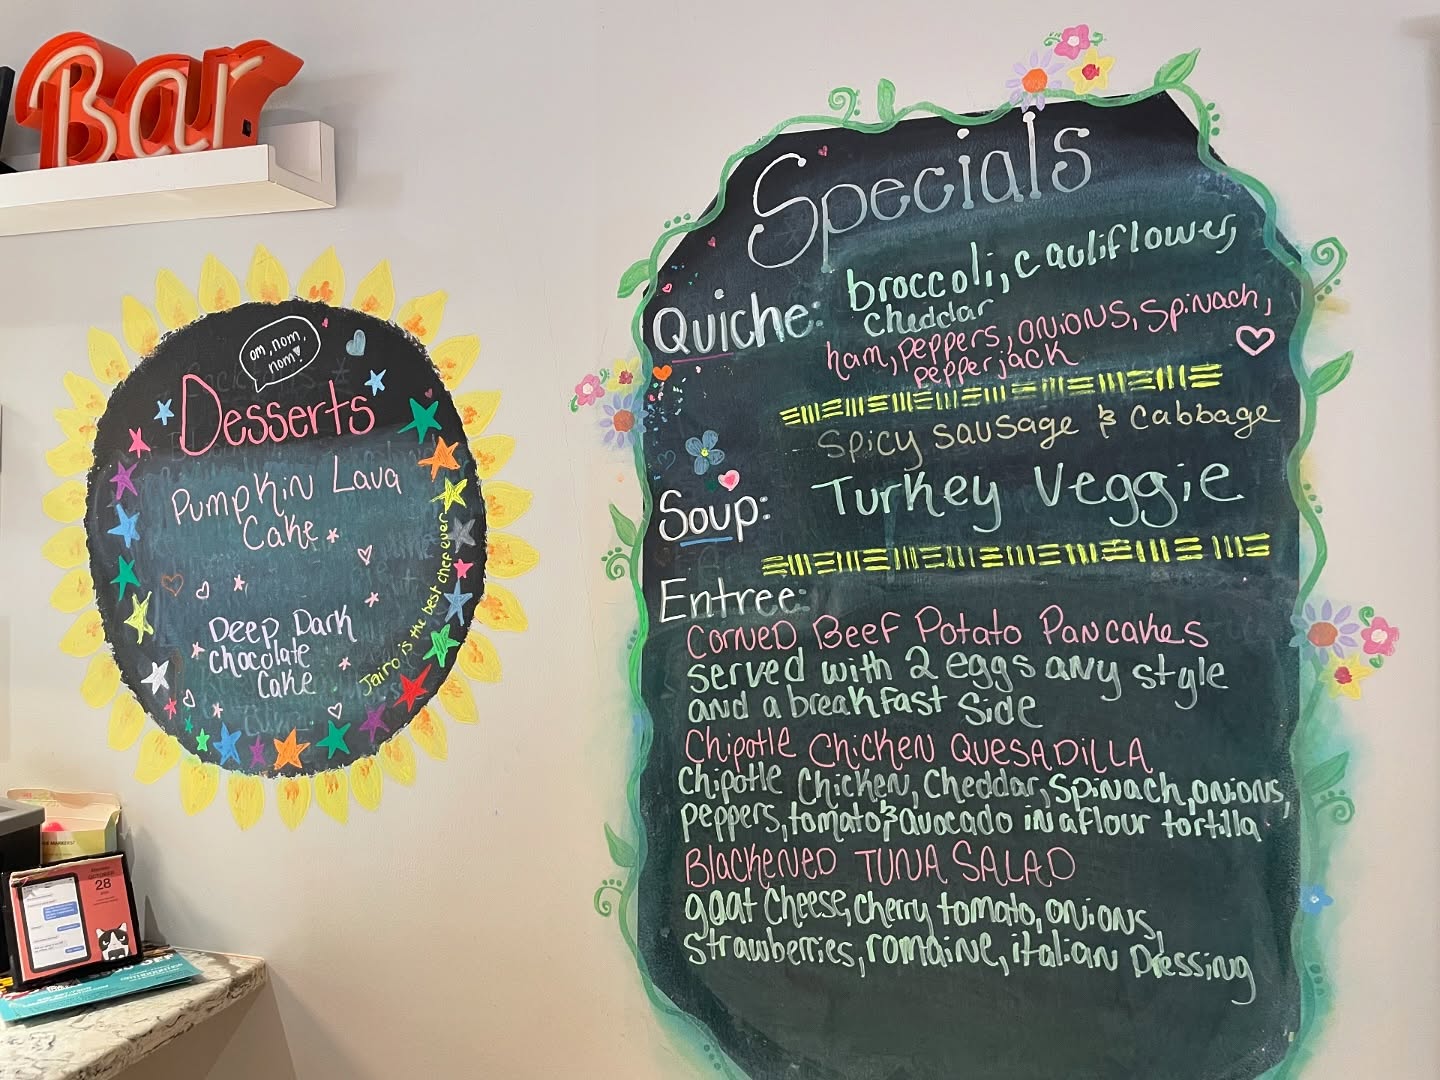 Bar
om, nom,
nom!
Desserts
Pumpkin Lava
Cake
Deep Dark
Chocolate
Cake
Jairo is the best chef ever
Specials
Quiche:
broccoli, cauliflower,
cheddar
ham, peppers, onions, spinach,
pepperjack
Soup:
Spicy sausage & cabbage
Turkey Veggie
Entree:
Corned Beef Potato Pancakes
served with 2 eggs any style
and a breakfast side
Chipotle Chicken Quesadilla
Chipotle Chicken, Cheddar, Spinach, onions,
peppers, tomato & avocado in a flour tortilla
Blackened Tuna Salad
goat cheese, cherry tomato, onions,
strawberries, romaine, italian Dressing
OCTOBER
28